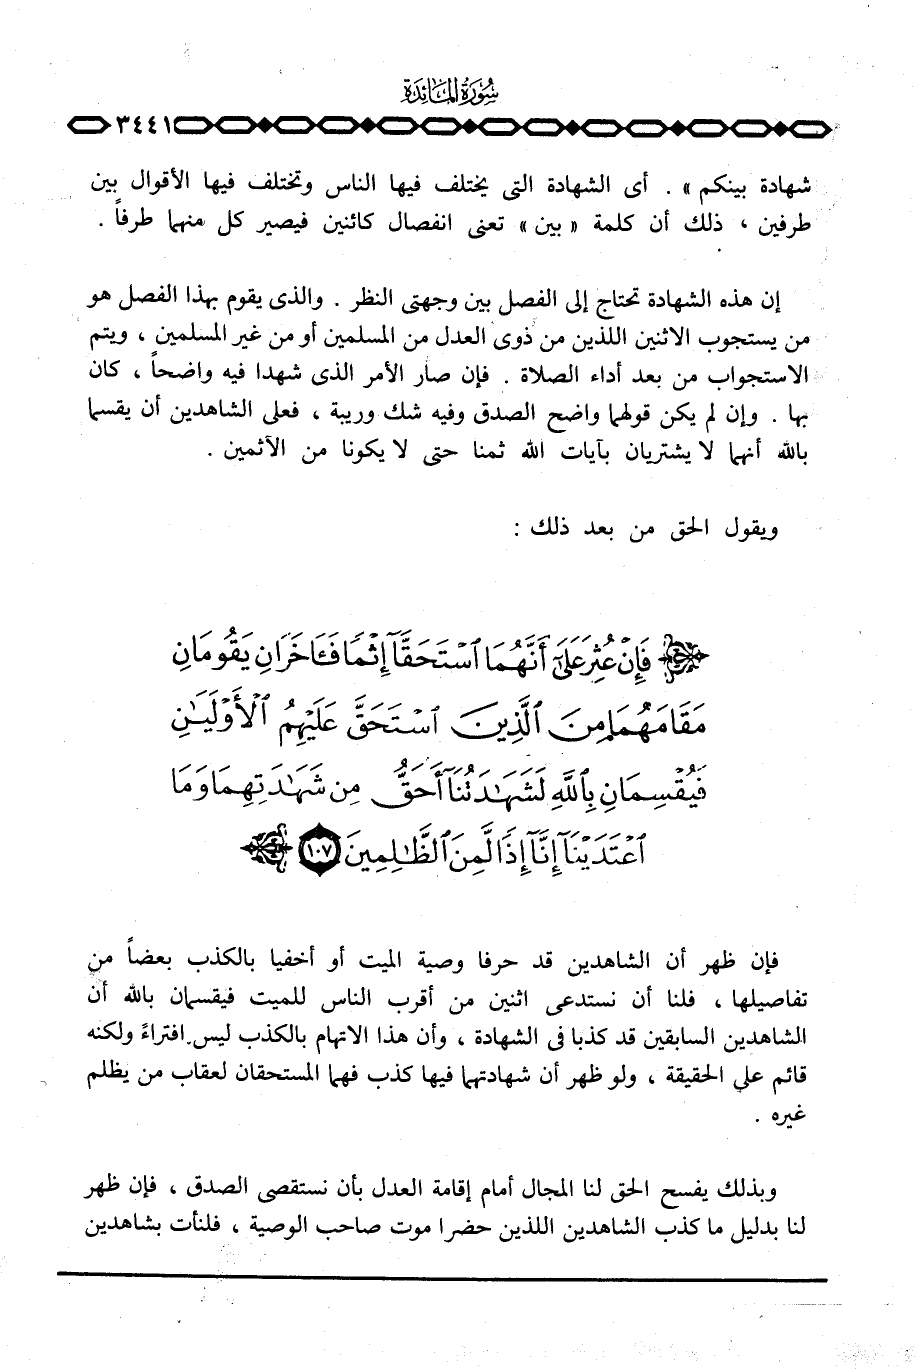 سُورَةُ المَائِدَة
٣٤٤١
شهادة بينكم » . أى الشهادة التى يختلف فيها الناس وتختلف فيها الأقوال بين
طرفين ، ذلك أن كلمة « بين » تعنى انفصال كائنين فيصير كل منهما طرفاً .
إن هذه الشهادة تحتاج إلى الفصل بين وجهتى النظر . والذى يقوم بهذا الفصل هو
من يستجوب الاثنين اللذين من ذوى العدل من المسلمين أو من غير المسلمين ، ويتم
الاستجواب من بعد أداء الصلاة . فإن صار الأمر الذى شهدا فيه واضحاً ، كان
بها . وإن لم يكن قولهما واضح الصدق وفيه شك وريبة ، فعلى الشاهدين أن يقسما
بالله أنهما لا يشتريان بآيات الله ثمنا حتى لا يكونا من الآثمين .
ويقول الحق من بعد ذلك :
فَإِنْ عُثِرَ عَلَىٰٓ أَنَّهُمَا ٱسْتَحَقَّآ إِثْمًا فَـَٔاخَرَانِ يَقُومَانِ
مَقَامَهُمَا مِنَ ٱلَّذِينَ ٱسْتَحَقَّ عَلَيْهِمُ ٱلْأَوْلَيَـٰنِ
فَيُقْسِمَانِ بِٱللَّهِ لَشَهَـٰدَتُنَآ أَحَقُّ مِن شَهَـٰدَتِهِمَا وَمَا
ٱعْتَدَيْنَآ إِنَّآ إِذًا لَّمِنَ ٱلظَّـٰلِمِينَ ١٠٧
فإن ظهر أن الشاهدين قد حرفا وصية الميت أو أخفيا بالكذب بعضاً من
تفاصيلها ، فلنا أن نستدعى اثنين من أقرب الناس للميت فيقسمان بالله أن
الشاهدين السابقين قد كذبا فى الشهادة ، وأن هذا الاتهام بالكذب ليس افتراءً ولكنه
قائم على الحقيقة ، ولو ظهر أن شهادتهما فيها كذب فهما المستحقان لعقاب من يظلم
غيره .
وبذلك يفسح الحق لنا المجال أمام إقامة العدل بأن نستقصى الصدق ، فإن ظهر
لنا بدليل ما كذب الشاهدين اللذين حضرا موت صاحب الوصية ، فلنأت بشاهدين